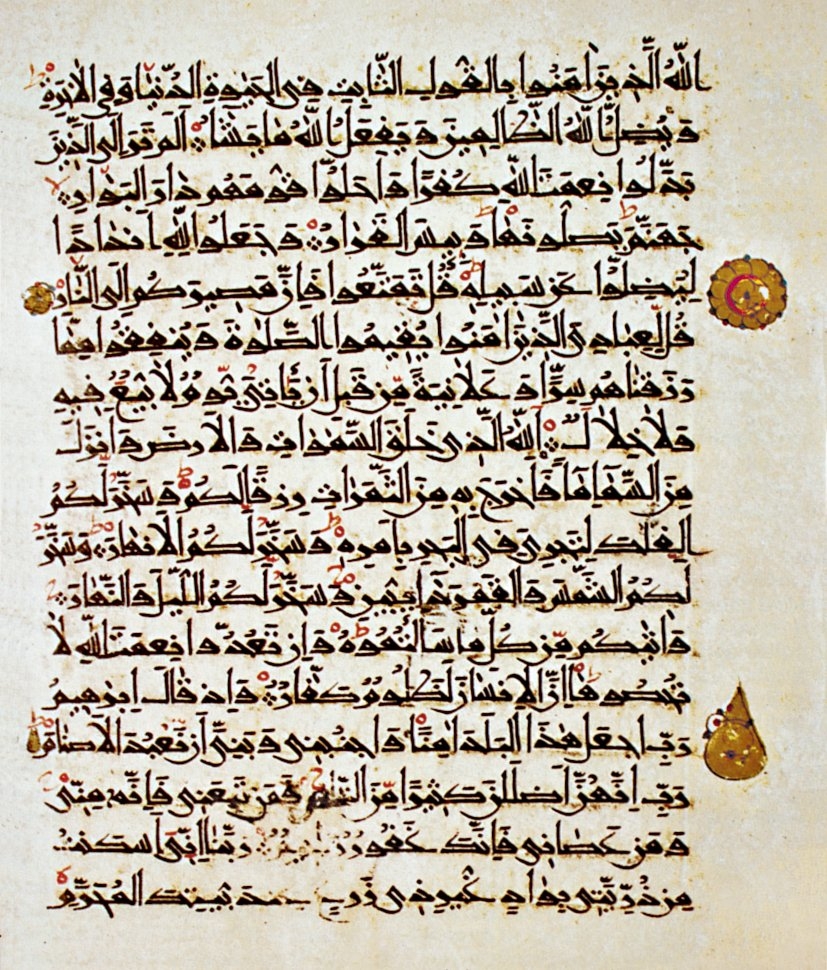 الله الذين امنوا بالقول الثابت في الحيوة الدنيا وفي الاخرة
ويضل الله الظالمين ويفعل الله ما يشا الم تر الى الذين
بدلوا نعمت الله كفرا واحلوا قومهم دار البوار
جهنم يصلونها وبيس القرار وجعلوا لله اندادا
ليضلوا عن سبيله قل تمتعوا فان مصيركم الى النار
قل لعبادي الذين امنوا يقيموا الصلوة وينفقوا مما
رزقناهم سرا وعلانية من قبل ان ياتي يوم لا بيع فيه
ولا خلال الله الذي خلق السموات والارض وانزل
من السما ما فاخرج به من الثمرات رزقا لكم وسخر لكم
الفلك لتجري في البحر بامره وسخر لكم الانهار وسخر
لكم الشمس والقمر دايبين وسخر لكم الليل والنهار
واتيكم من كل ما سالتموه وان تعدوا نعمت الله لا
تحصوها ان الانسان لظلوم كفار واذ قال ابرهيم
رب اجعل هذا البلد امنا واجنبني وبني ان نعبد الاصنام
رب انهن اضللن كثيرا من الناس فمن تبعني فانه مني
ومن عصاني فانك غفور رحيم ربنا اني اسكنت
من ذريتي بواد غير ذي زرع عند بيتك المحرم